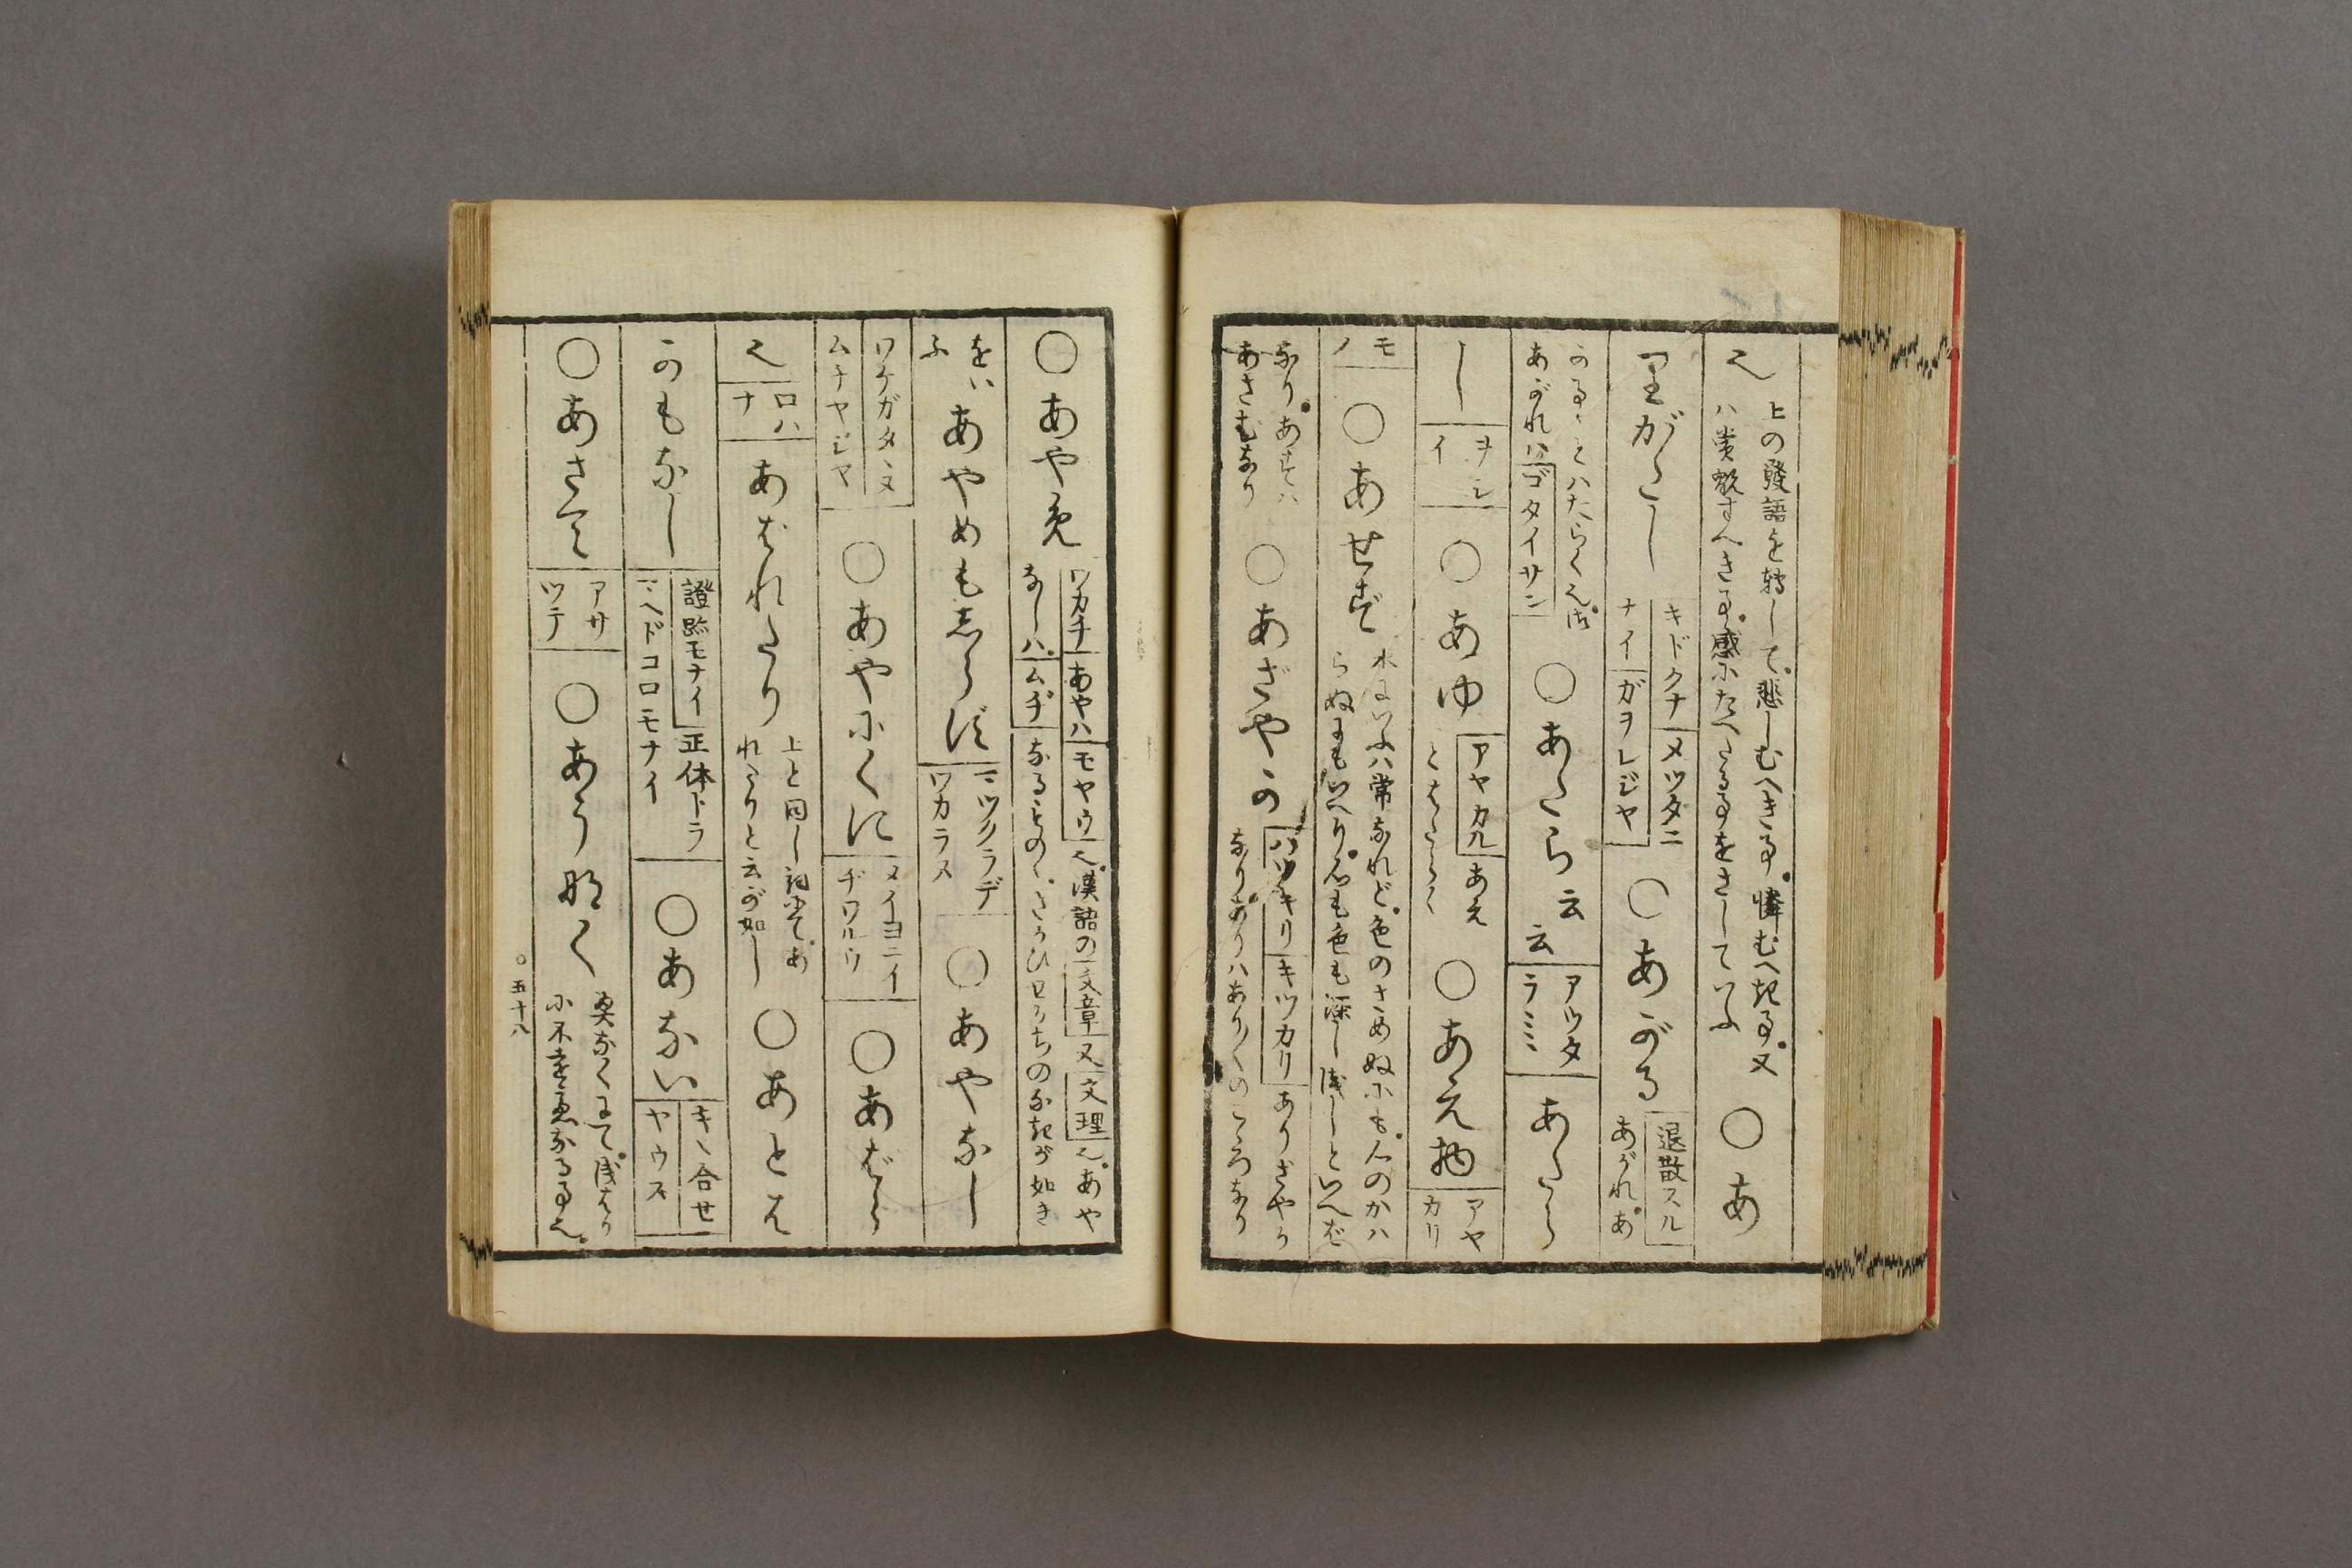 也
上の發語を轉して悲しむへき事憐むへき事又
ハ賞歎すへき事感にたへたる事をさしていふ
○あ
りがたし
キドクナ メツタニ
ナイ ガヲレジヤ
○あがる
退散スル
あがれあ
かるゝとハたらく也御
あがれハゴタイサン
○あたら云云
アツタ
ラミミ
あたら
し
ヲシ
イ
○あゆ
アヤカル あえ
とはたらく
○あえ物
アヤ
カリ
モ
ノ
○あせず
水にいふハ常なれど色のさめぬにも人のかハ
らぬにもいへり心も色も深し浅しといへば
なりあすハ
あさむなり
○あざやか
ハツキリ キツカリ ありざやか
なりありハありありのこゝろなり
○あや免
ワカチ あやハ モヤウ 也漢語の 文章 又 文理 也あや
なしハ ムチ なるものゝさかひわかちのなきが如き
をい
ふ
あやめもしらず
マツクラデ
ワカラス
○あやなし
ワケガタヽヌ
ムチヤジヤ
○あやにくに
メイヨニイ
ヂワルウ
○あばら
也
ロハ
ナ
あばれたり
上と同し詞にてあ
れたりと云が如し
○あとは
かもなし
證跡モナイ 正体トラ
マヘドコロモナイ
○あない
キヽ合せ
ヤウス
○あさへ
アサ
ツテ
○あうなく
奥なくにて浅はか
に不遠慮なる事也
○五十八